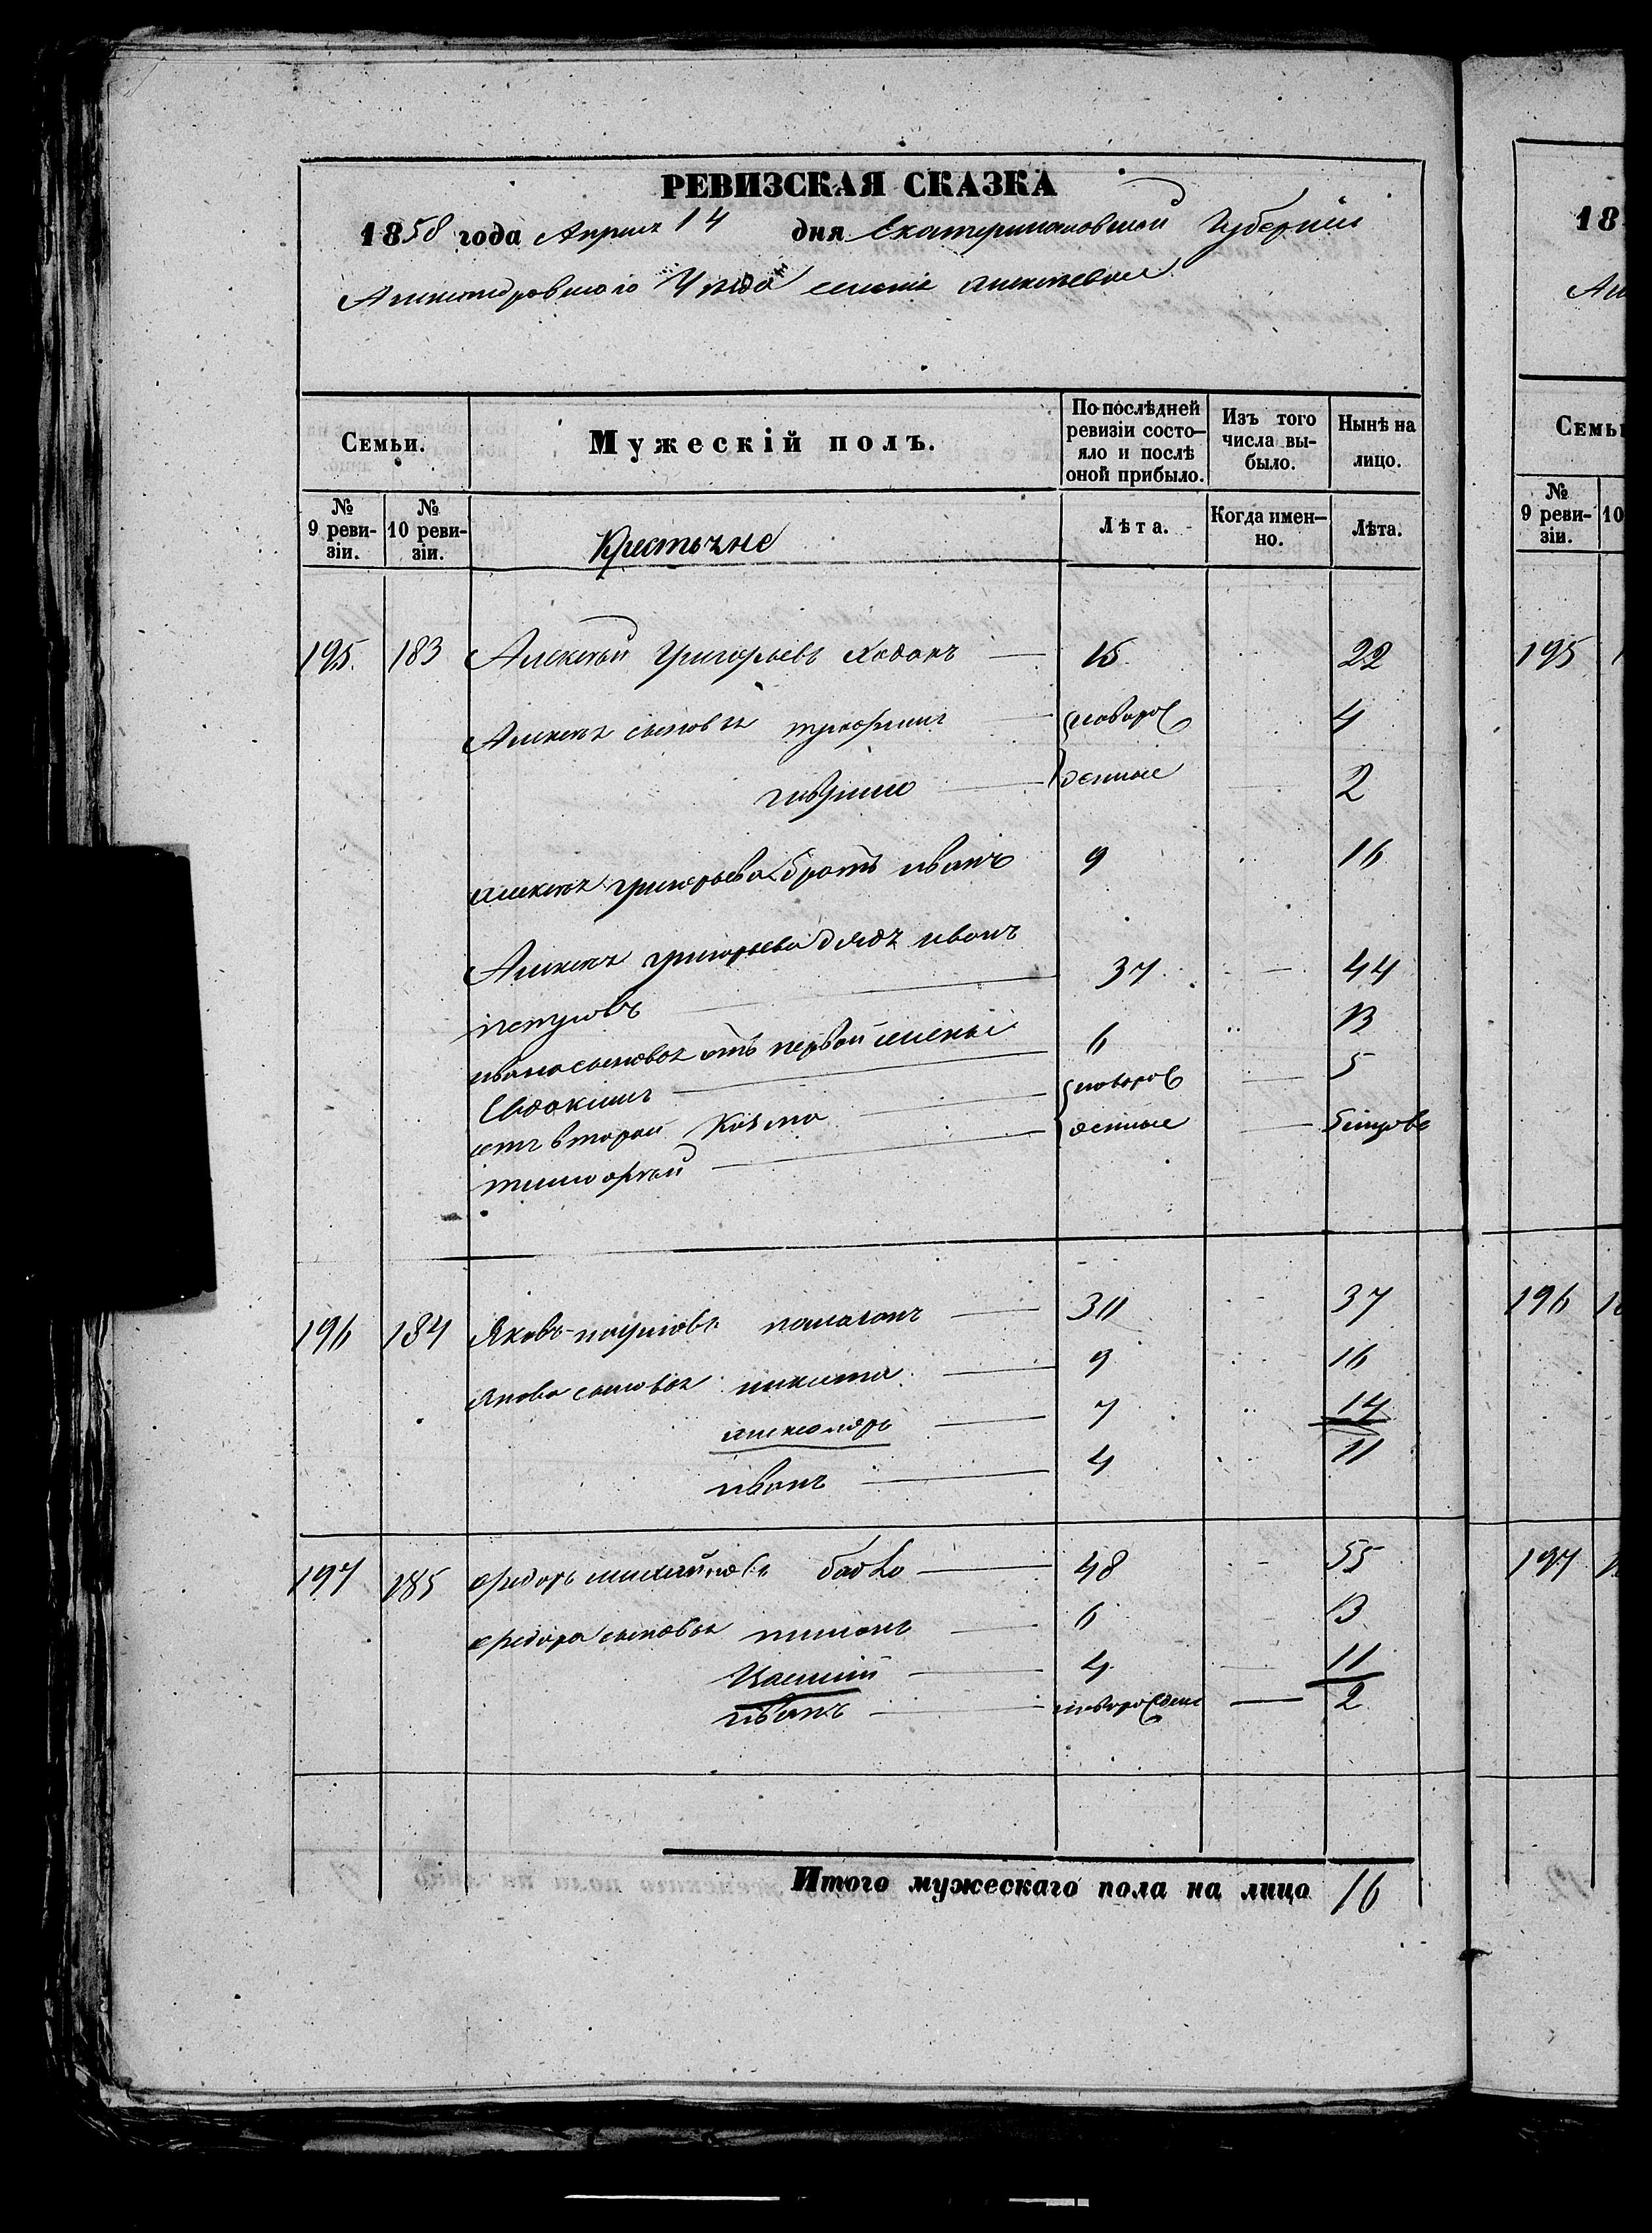 РЕВИЗСКАЯ СКАЗКА
1858 года Апреля 14 дня Екатеринославской Губернии
Александровского Уезда селенiе
Семьи.
Мужескiй полъ.
По послѣдней ревизiи состо-яло и послѣ оной прибыло.
Изъ того числа вы-было.
Нынѣ на лицо.
№ 9 реви-зiи.
№ 10 реви-зiи.
Крестьяне
Лѣта.
Когда имен-но.
Лѣта.
195. 183 Алексѣй Григорьевъ Ходакъ 15 22
Алексѣя сыновья Трофимъ новорож 4
Гаврило денные 2
Алексѣя Григорьева братъ Иванъ 9 16
Алексѣя Григорьева дядя Иванъ
Петровъ 37 44
Ивана сыновья отъ первой жены
Евдокимъ 6 13
отъ второй Козма новорож 5
Тимофей денные
196 184 Яковъ 30 37
Якова сыновья Никита 9 16
Александръ 7 14
Иванъ 4 11
197 185 Федоръ Михайловъ 48 55
Федора сыновья 6 13
4 11
Иванъ новорожден 2
Итого мужескаго пола на лицо 16
18
Семьи
№ 9 реви-зiи.
10
195
196
197